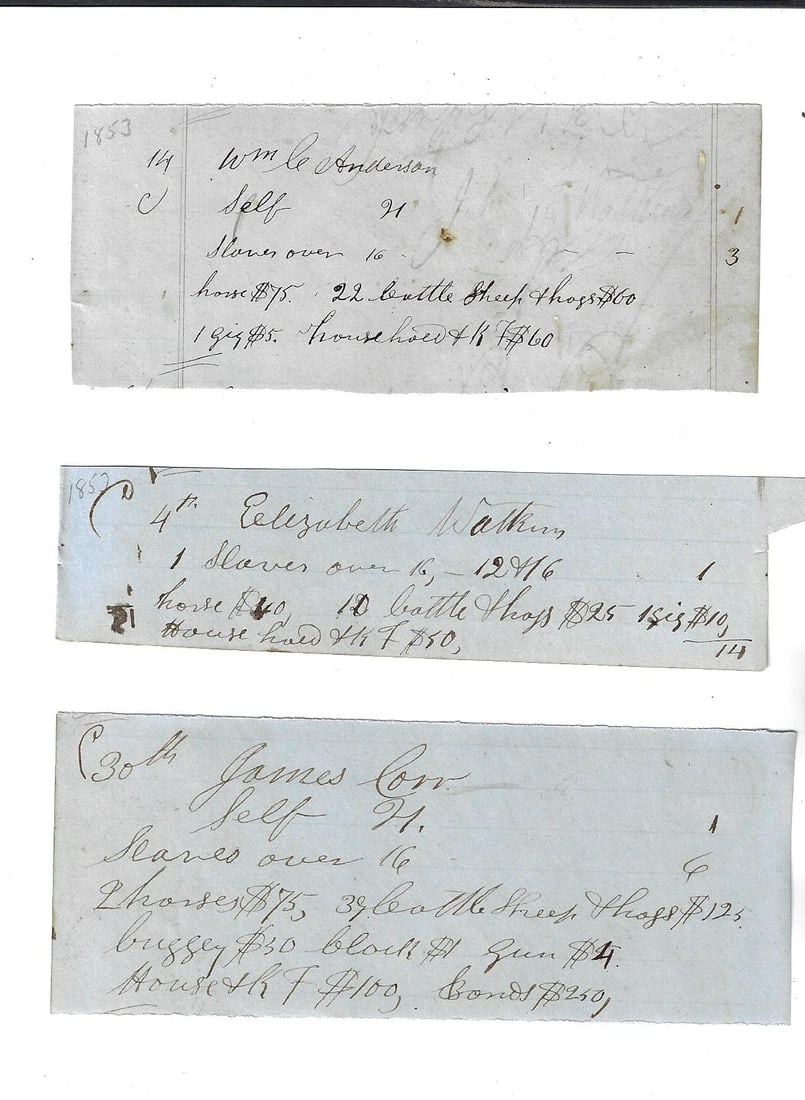 1853
14 Wm C Anderson
Self 21 1
Slaves over 16 3
horse $75. 22 Cattle Sheep & hogs $60
1 gig $5. household & K F $60
185
4th Elizabeth Watkins
1 Slaves over 16, – 12 & 16 1
horse $40, 10 Cattle & hogs $25 1 gig $10,
House hold & K F $50, 14
30th James Corr
Self 21. 1
Slaves over 16 6
2 horses $75, 39 Cattle Sheep & hogs $125
buggey $50 Clock $1 gun $4.
House & K F $100, Bonds $250,